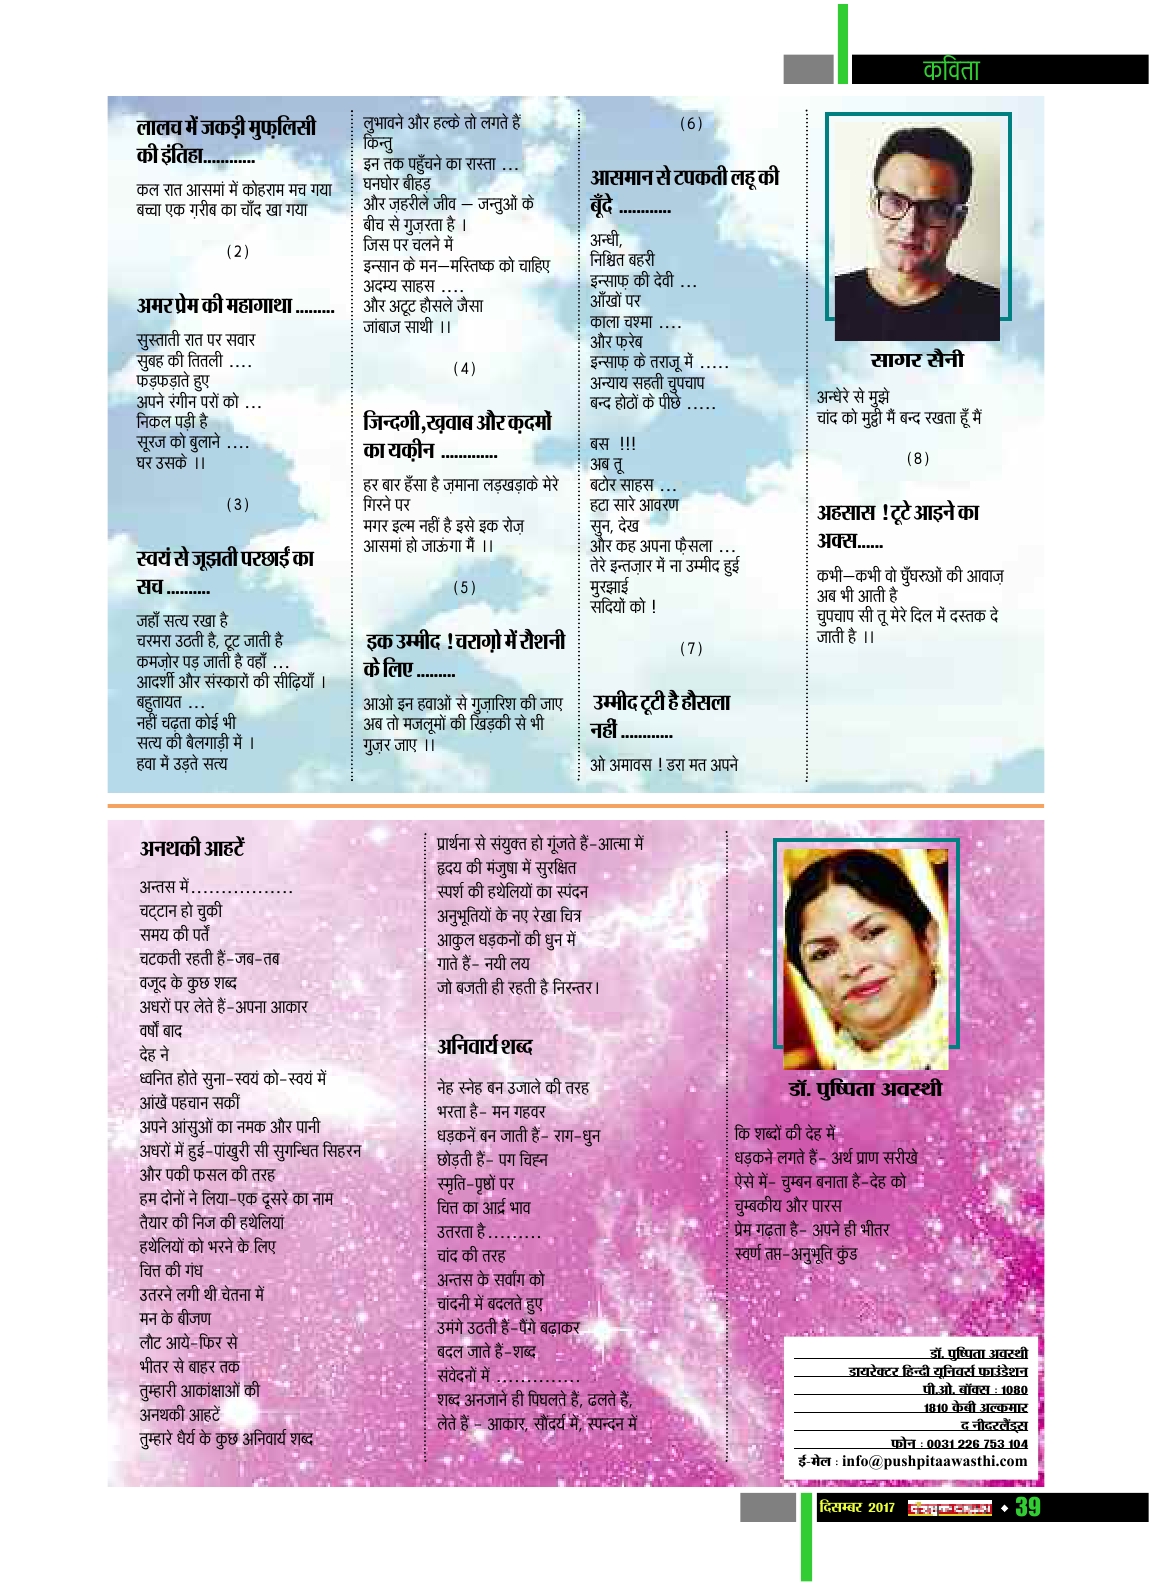 कविता
लालच में जकड़ी मुफ़लिसी
की इंतिहा............
कल रात आसमां में कोहराम मच गया
बच्चा एक ग़रीब का चाँद खा गया
(2)
अमर प्रेम की महागाथा .........
सुस्ताती रात पर सवार
सुबह की तितली ....
फड़फड़ाते हुए
अपने रंगीन परों को ...
निकल पड़ी है
सूरज को बुलाने ....
घर उसके ।।
(3)
स्वयं से जूझती परछाईं का
सच ..........
जहाँ सत्य रखा है
चरमरा उठती है, टूट जाती है
कमज़ोर पड़ जाती है वहाँ ...
आदर्शी और संस्कारों की सीढ़ियाँ ।
बहुतायत ...
नहीं चढ़ता कोई भी
सत्य की बैलगाड़ी में ।
हवा में उड़ते सत्य
लुभावने और हल्के तो लगते हैं
किन्तु
इन तक पहुँचने का रास्ता ...
घनघोर बीहड़
और ज़हरीले जीव – जन्तुओं के
बीच से गुज़रता है ।
जिस पर चलने में
इन्सान के मन–मस्तिष्क को चाहिए
अदम्य साहस ....
और अटूट हौसले जैसा
जांबाज साथी ।।
(4)
जिन्दगी,ख़्वाब और क़दमों
का यक़ीन .............
हर बार हँसा है ज़माना लड़खड़ाके मेरे
गिरने पर
मगर इल्म नहीं है इसे इक रोज़
आसमां हो जाऊंगा मैं ।।
(5)
इक उम्मीद ! चराग़ो में रौशनी
के लिए .........
आओ इन हवाओं से गुज़ारिश की जाए
अब तो मजलूमों की खिड़की से भी
गुज़र जाए ।।
(6)
आसमान से टपकती लहू की
बूँदे ............
अन्धी,
निश्चित बहरी
इन्साफ़ की देवी ...
आँखों पर
काला चश्मा ....
और फ़रेब
इन्साफ़ के तराजू में .....
अन्याय सहती चुपचाप
बन्द होठों के पीछे .....
बस !!!
अब तू
बटोर साहस ...
हटा सारे आवरण
सुन, देख
और कह अपना फ़ैसला ...
तेरे इन्तज़ार में ना उम्मीद हुई
मुरझाई
सदियों को !
(7)
उम्मीद टूटी है हौसला
नहीं ............
ओ अमावस ! डरा मत अपने
सागर सैनी
अन्धेरे से मुझे
चांद को मुट्ठी मैं बन्द रखता हूँ मैं
(8)
अहसास ! टूटे आइने का
अक्स......
कभी–कभी वो घुँघरुओं की आवाज़
अब भी आती है
चुपचाप सी तू मेरे दिल में दस्तक दे
जाती है ।।
अनथकी आहटें
अन्तस में.................
चट्टान हो चुकी
समय की पर्तें
चटकती रहती हैं-जब-तब
वजूद के कुछ शब्द
अधरों पर लेते हैं-अपना आकार
वर्षों बाद
देह ने
ध्वनित होते सुना-स्वयं को-स्वयं में
आंखें पहचान सकीं
अपने आंसुओं का नमक और पानी
अधरों में हुई-पांखुरी सी सुगन्धित सिहरन
और पकी फसल की तरह
हम दोनों ने लिया-एक दूसरे का नाम
तैयार की निज की हथेलियां
हथेलियों को भरने के लिए
चित्त की गंध
उतरने लगी थी चेतना में
मन के बीजण
लौट आये-फिर से
भीतर से बाहर तक
तुम्हारी आकांक्षाओं की
अनथकी आहटें
तुम्हारे धैर्य के कुछ अनिवार्य शब्द
प्रार्थना से संयुक्त हो गूंजते हैं-आत्मा में
हृदय की मंजुषा में सुरक्षित
स्पर्श की हथेलियों का स्पंदन
अनुभूतियों के नए रेखा चित्र
आकुल धड़कनों की धुन में
गाते हैं- नयी लय
जो बजती ही रहती है निरन्तर।
अनिवार्य शब्द
नेह स्नेह बन उजाले की तरह
भरता है- मन गहवर
धड़कनें बन जाती हैं- राग-धुन
छोड़ती हैं- पग चिह्न
स्मृति-पृष्ठों पर
चित्त का आर्द्र भाव
उतरता है.........
चांद की तरह
अन्तस के सर्वांग को
चांदनी में बदलते हुए
उमंगे उठती हैं-पैंगे बढ़ाकर
बदल जाते हैं-शब्द
संवेदनों में ..............
शब्द अनजाने ही पिघलते हैं, ढलते हैं,
लेते हैं - आकार, सौंदर्य में, स्पन्दन में
डॉ. पुष्पिता अवस्थी
कि शब्दों की देह में
धड़कने लगते हैं- अर्थ प्राण सरीखे
ऐसे में- चुम्बन बनाता है-देह को
चुम्बकीय और पारस
प्रेम गढ़ता है- अपने ही भीतर
स्वर्ण तप्त-अनुभूति कुंड
डॉ. पुष्पिता अवस्थी
डायरेक्टर हिन्दी यूनिवर्स फाउंडेशन
पी.ओ. बॉक्स : 1080
1810 केबी अल्कमार
द नीदरलैंड्स
फोन : 0031 226 753 104
ई-मेल : info@pushpitaawasthi.com
दिसम्बर 2017
39